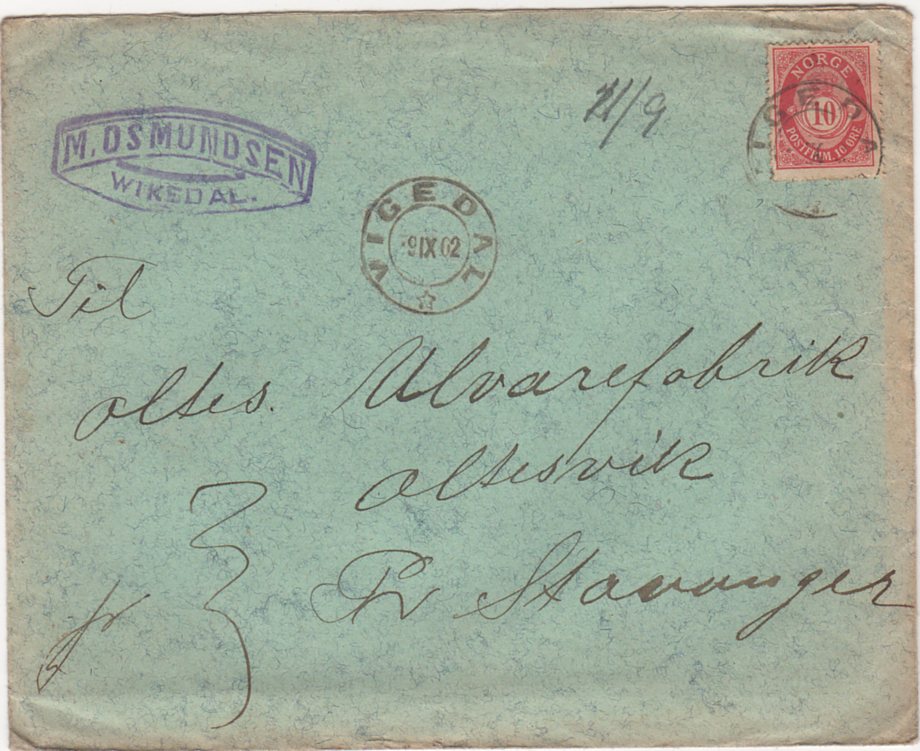 M. OSMUNDSEN
WIKEDAL.
11/9
NORGE
10
POSTFRIM. 10 ØRE
VIGEDAL
9 IX 02
Til
Oltes. Ulvarefabrik
Oltesvik
Pr Stavanger
fr